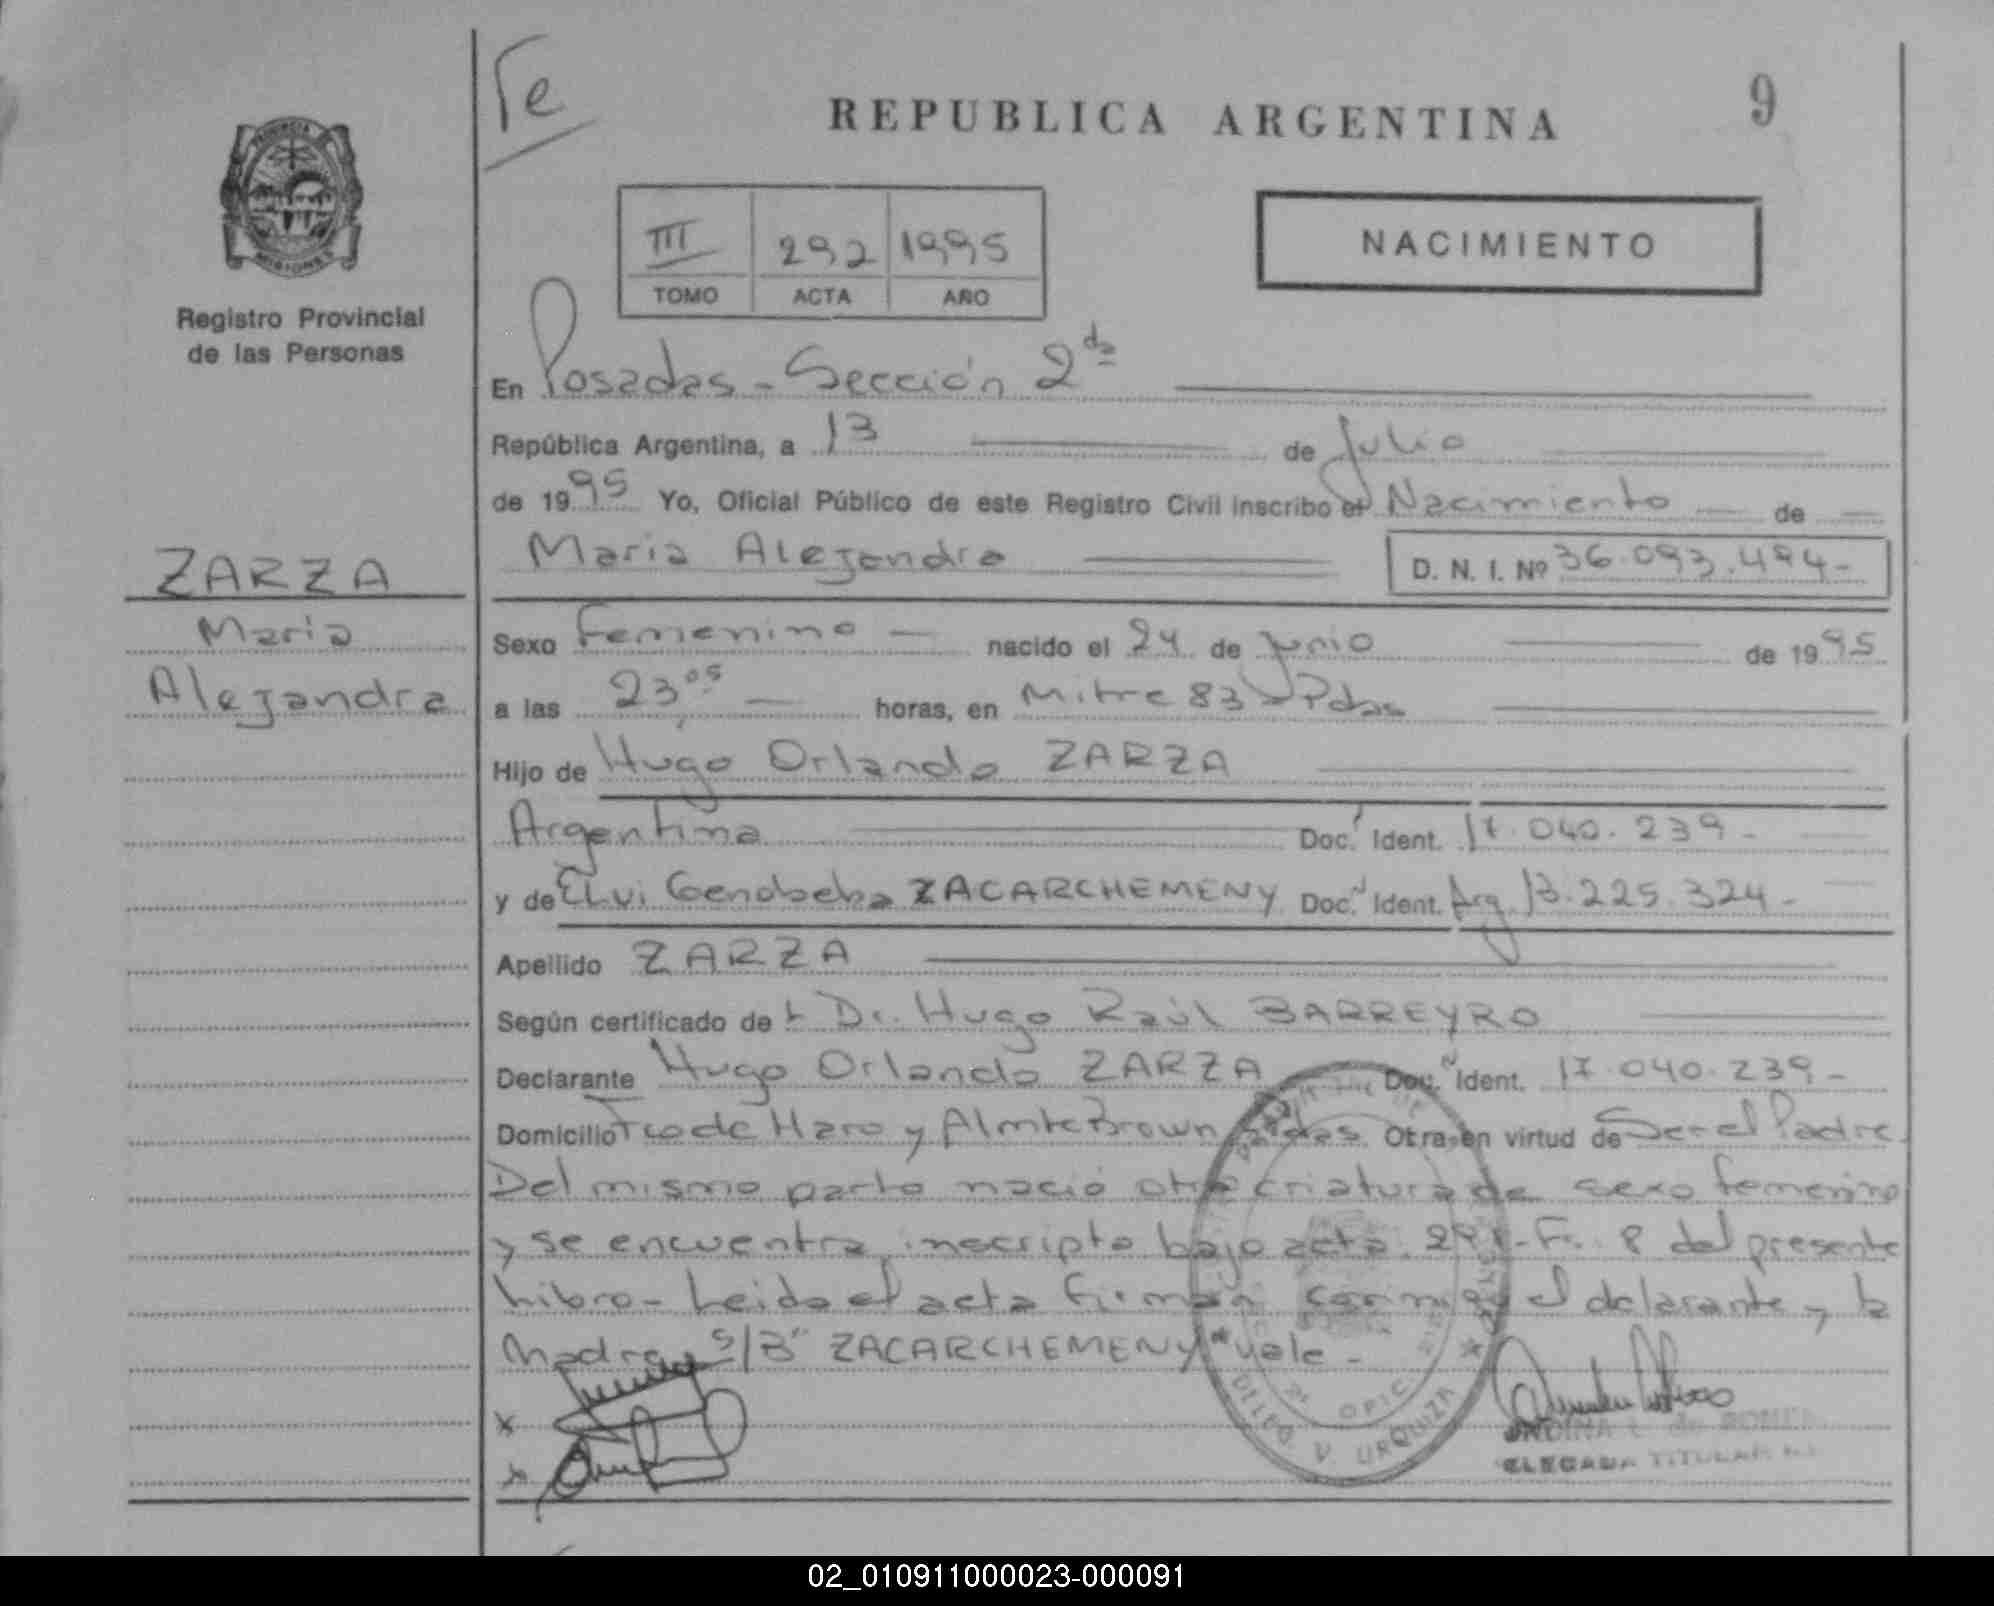 Te
REPUBLICA ARGENTINA
9
PROVINCIA
MISIONES
Registro Provincial
de las Personas
III 292 1995
TOMO ACTA AÑO
NACIMIENTO
En Posadas - Sección 2da
República Argentina, a 13 de Julio
de 1995 Yo, Oficial Público de este Registro Civil inscribo el Nacimiento de
Maria Alejandra D. N. I. Nº 36.093.494-
ZARZA
Maria
Alejandra
Sexo Femenino nacido el 24 de Junio de 1995
a las 23,05 horas, en Mitre 83 - Pdas
Hijo de Hugo Orlando ZARZA
Argentina Doc. Ident. 17.040.239-
y de Elvi Genobeba ZACARCHEMENY Doc. Ident. Arg 13.225.324-
Apellido ZARZA
Según certificado del Dr. Hugo Raúl BARREYRO
Declarante Hugo Orlando ZARZA Doc. Ident. 17.040.239-
Domicilio Fco de Haro y Almte Brown Pdas. Otra, en virtud de Ser el Padre
Del mismo parto nació otra criatura de sexo femenino
y se encuentra inscripta bajo acta 291-F. 8 del presente
Libro- Leida el acta firman conmigo el declarante y la
Madre S/B" ZACARCHEMENY" vale-
x
x
DELFO V. URQUIZA
TITULAR
02_010911000023-000091